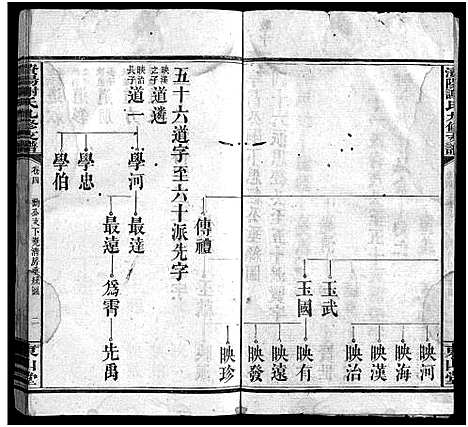 玉武
映河
映海
映漢
映治
玉國
映有
映遠
映發
傳禮
映珍
五十六道字至六十派先字
映漢之子
道遴
映治長子
道一
學河
最達
最遠
爲霄
先禹
學忠
學伯
卷四
東山堂